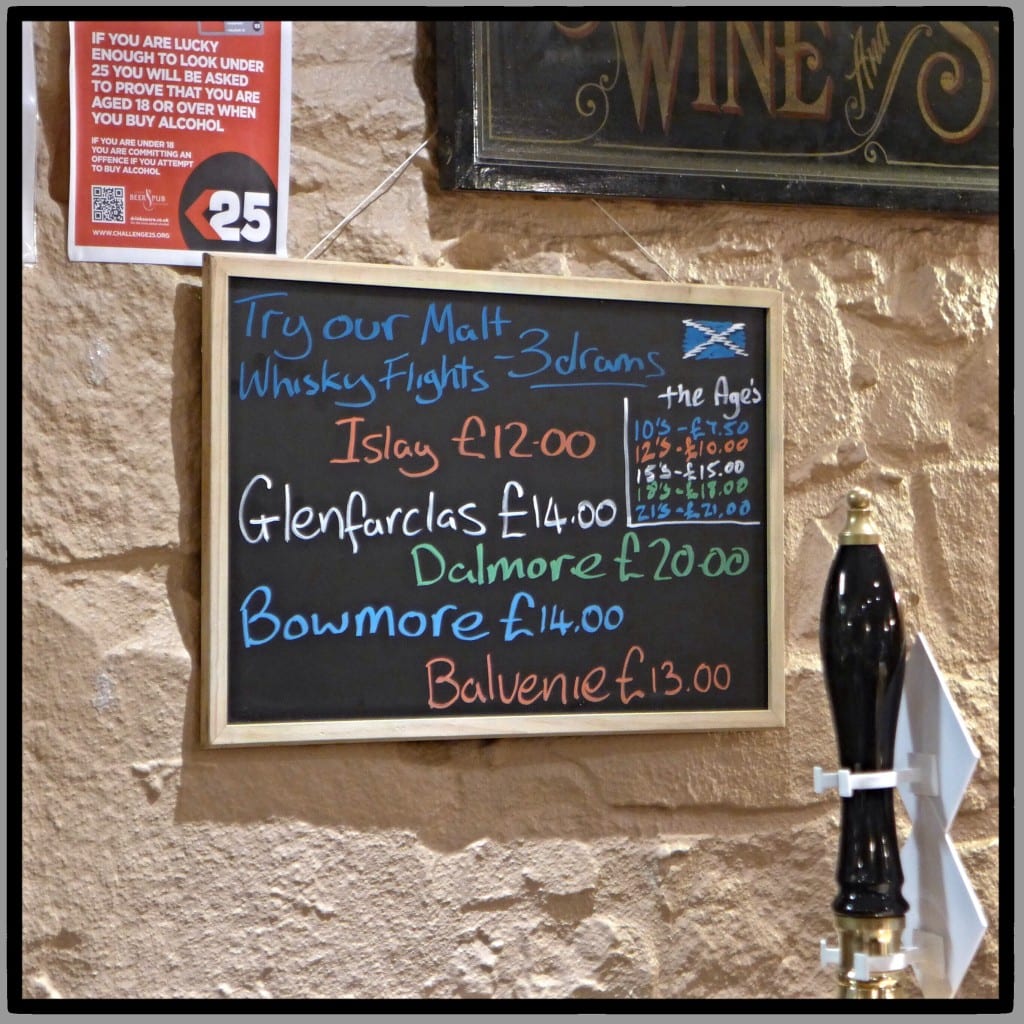 IF YOU ARE LUCKY
ENOUGH TO LOOK UNDER
25 YOU WILL BE ASKED
TO PROVE THAT YOU ARE
AGED 18 OR OVER WHEN
YOU BUY ALCOHOL
IF YOU ARE UNDER 18
YOU ARE COMMITTING AN
OFFENCE IF YOU ATTEMPT
TO BUY ALCOHOL
BEER & PUB
drinkaware.co.uk
WWW.CHALLENGE25.ORG
25
WINE And S
Try our Malt
Whisky Flights - 3 drams
the Age's
10's - £7.50
12's - £10.00
15's - £15.00
18's - £18.00
21's - £21.00
Islay £12.00
Glenfarclas £14.00
Dalmore £20.00
Bowmore £14.00
Balvenie £13.00